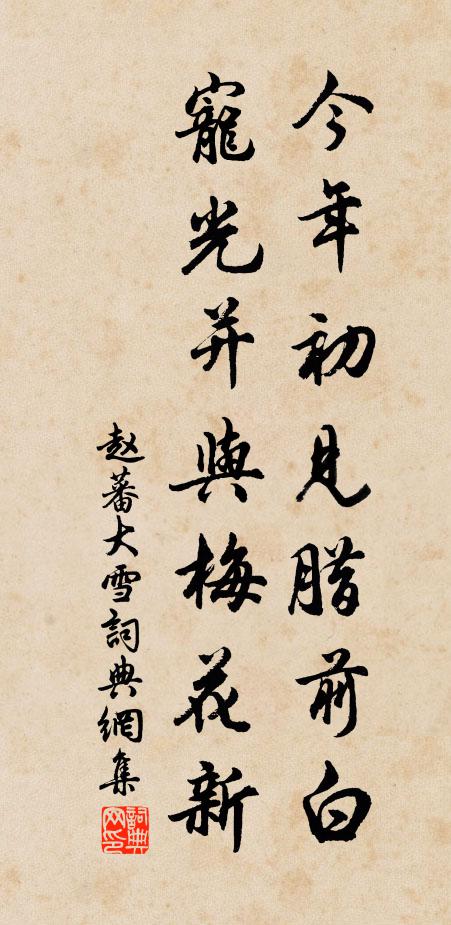 今年初見腊前白
寵光并與梅花新
赵蕃大雪詞典網集
詞典网印